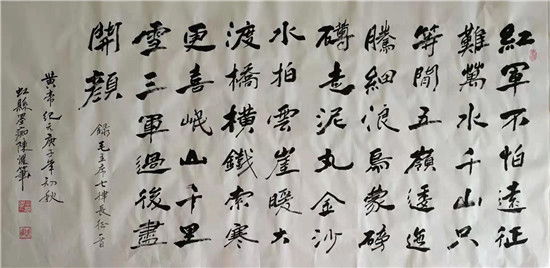 紅軍不怕遠征
難萬水千山只
等閒五嶺逶迤
騰細浪烏蒙磅
礡走泥丸金沙
水拍雲崖暖大
渡橋橫鐵索寒
更喜岷山千里
雪三軍過後盡
開顏
錄毛主席七律長征一首
黃帝紀元庚子年初秋
虹縣墨痴陳